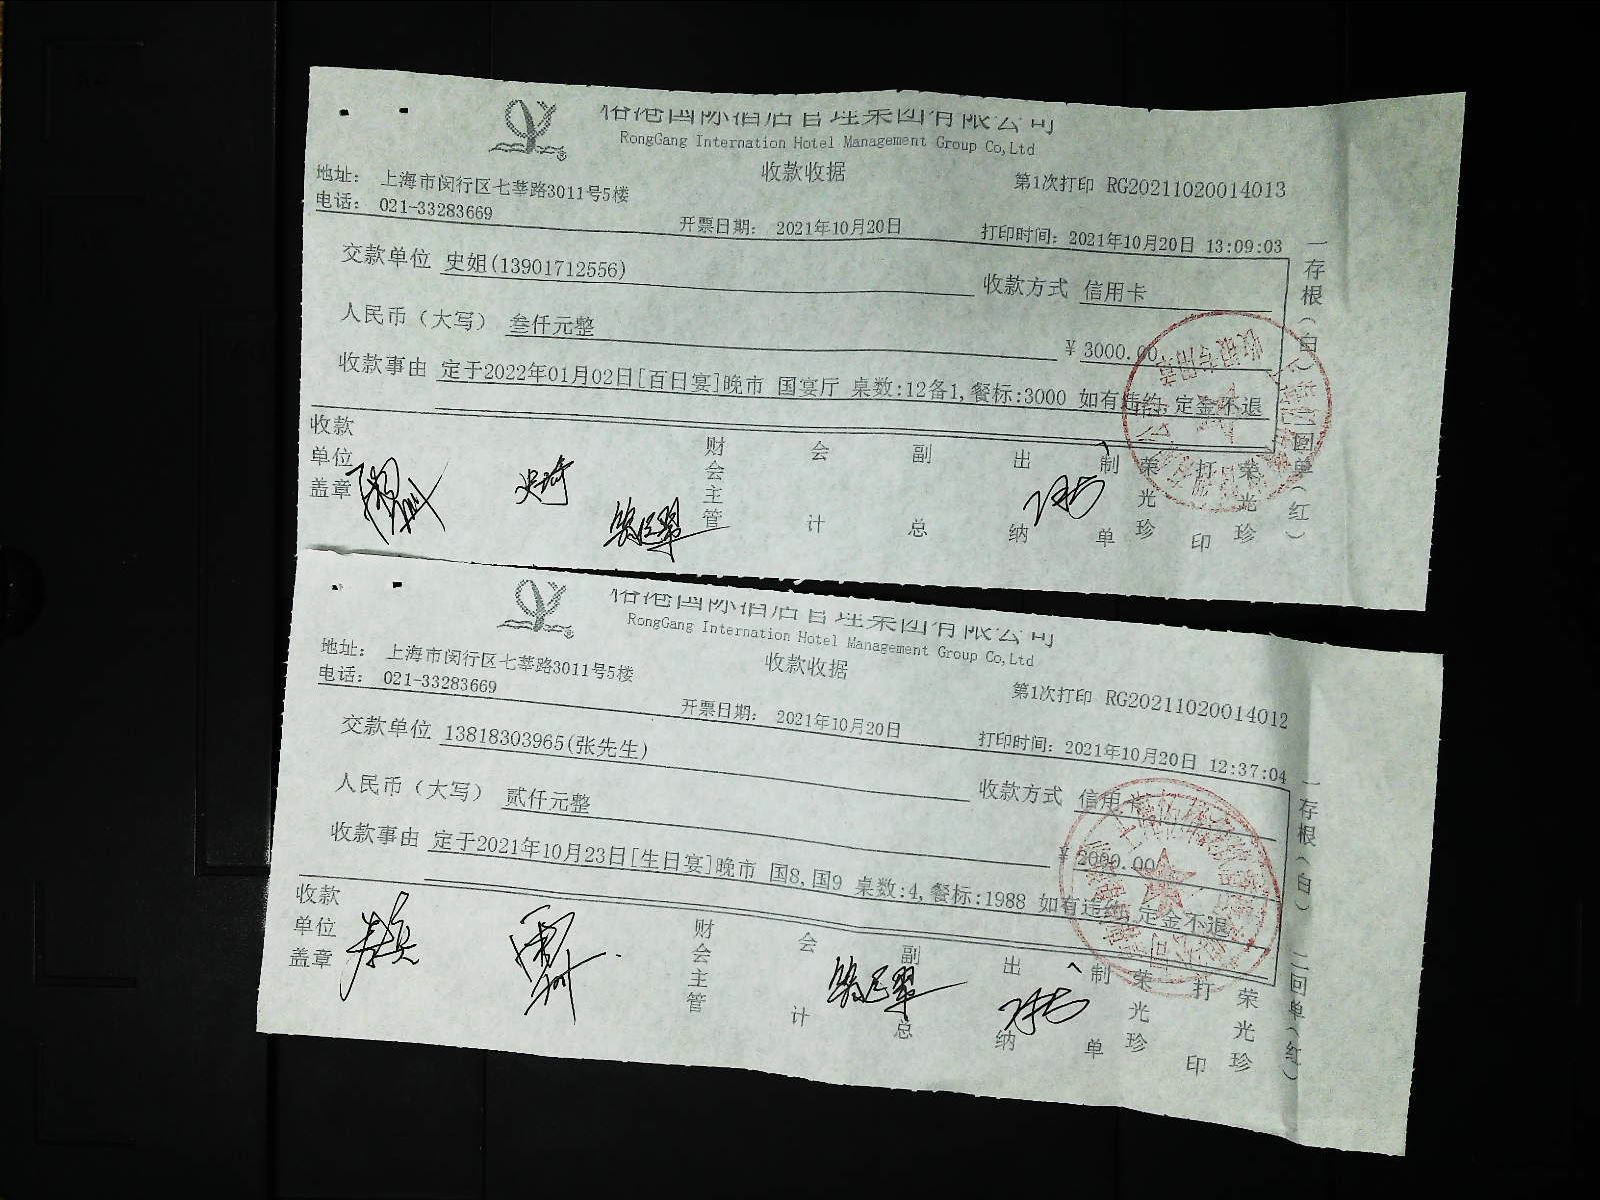 国际酒店管理集团有限公司
RongGang Internation Hotel Management Group Co,Ltd
收款收据
地址： 上海市闵行区七莘路3011号5楼
第1次打印 RG20211020014013
电话： 021-33283669
开票日期： 2021年10月20日
打印时间：2021年10月20日 13:09:03
交款单位 史姐(13901712556)
收款方式 信用卡
人民币（大写） 叁仟元整
¥ 3000.00
收款事由 定于2022年01月02日[百日宴]晚市 国宴厅 桌数:12备1,餐标:3000 如有违约,定金不退
收款单位盖章
财会主管
会计
副总
出纳
制单
荣光珍
打印
荣光珍
一存根（白） 二回单（红）
收银专用章
国际酒店管理集团有限公司
RongGang Internation Hotel Management Group Co,Ltd
收款收据
地址： 上海市闵行区七莘路3011号5楼
第1次打印 RG20211020014012
电话： 021-33283669
开票日期： 2021年10月20日
打印时间：2021年10月20日 12:37:04
交款单位 13818303965(张先生)
收款方式 信用卡
人民币（大写） 贰仟元整
¥ 2000.00
收款事由 定于2021年10月23日[生日宴]晚市 国8,国9 桌数:4,餐标:1988 如有违约,定金不退
收款单位盖章
财会主管
会计
副总
出纳
制单
荣光珍
打印
荣光珍
一存根（白） 二回单（红）